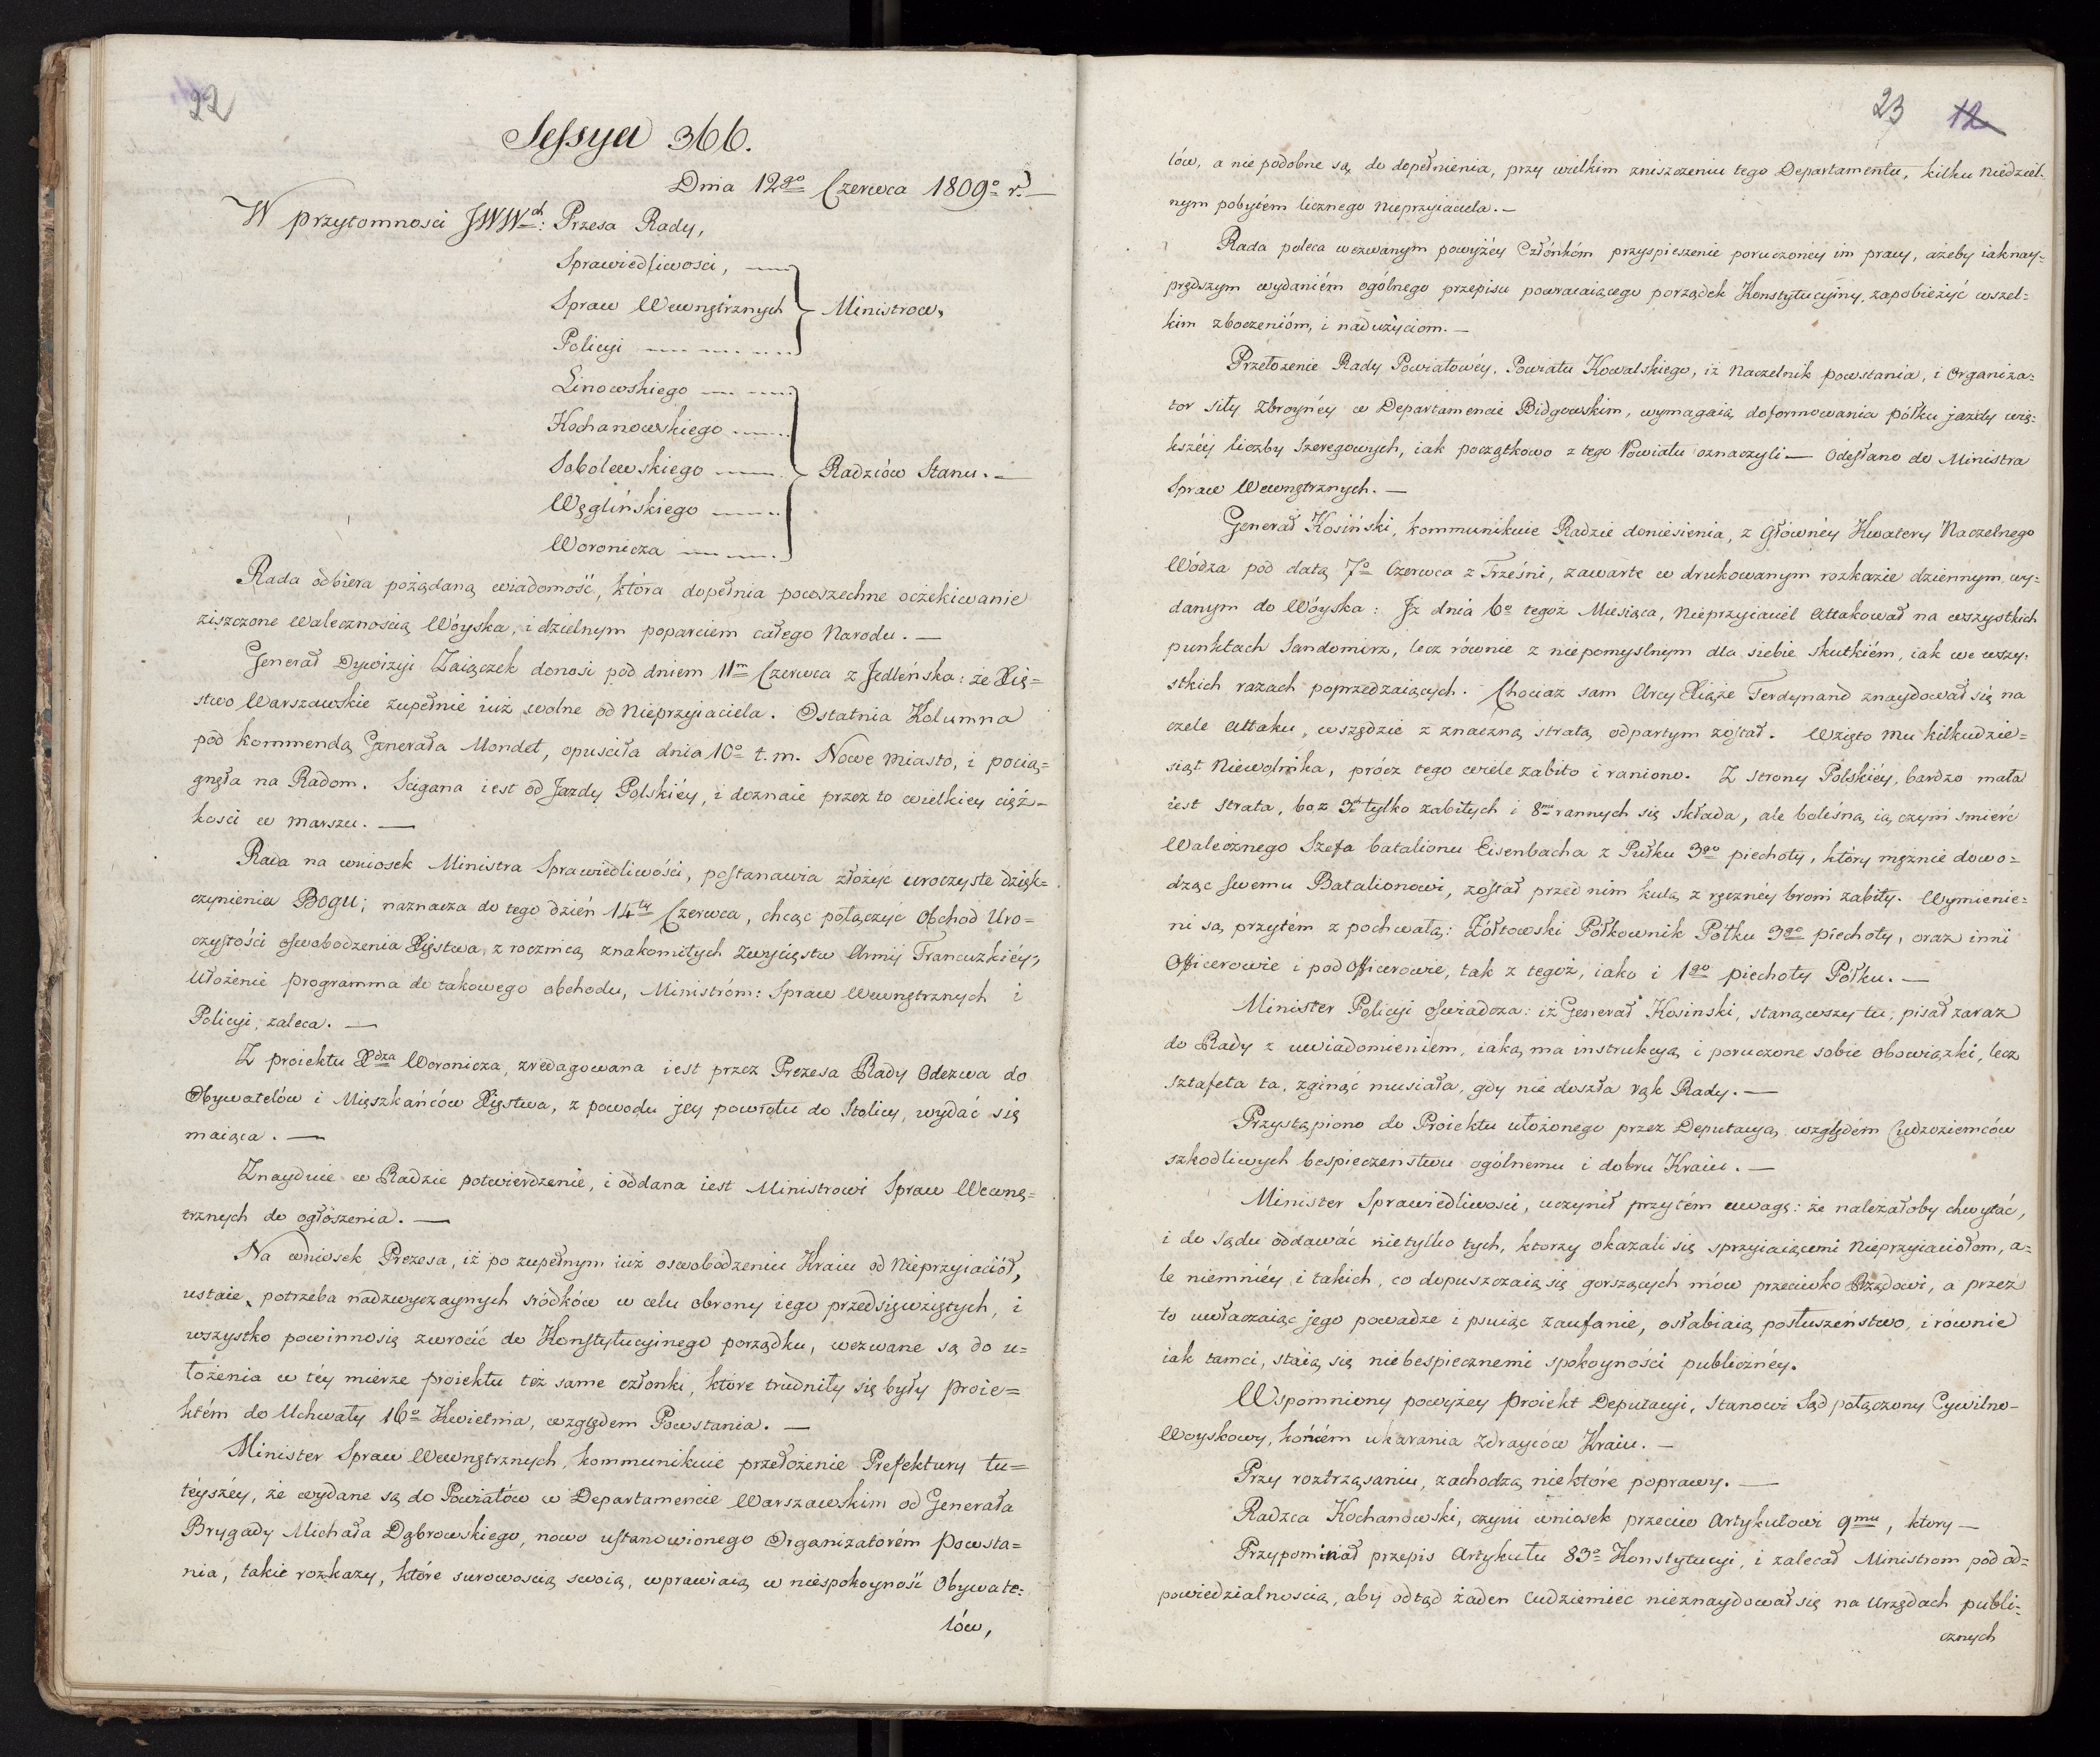 22
Sessya 366.
Dnia 12go Czerwca 1809o r. —
W przytomnosci JWWch: Przesa Rady,
Sprawiedliwosci, —
Spraw Wewnętrznych
Ministrow,
Policyi
Linowskiego
Kochanowskiego
Sobolewskiego
Radziów Stanu. —
Węglińskiego
Woronicza
Rada odbiera pożądaną wiadomość, która dopełnia powszechne oczekiwanie
ziszczone walecznością Wóyska, i dzielnym poparciem całego Narodu. —
Generał Dywizyi Zaiączek donosi pod dniem 11m Czerwca z Jedleńska: że Xię=
stwo Warszawskie zupełnie iuż wolne od Nieprzyiaciela. Ostatnia Kolumna
pod kommendą Generała Mondet, opusciła dnia 10o t. m. Nowe miasto, i pocią=
gnęła na Radom. Scigana iest od Jazdy Polskiéy, i doznaie przez to wielkiey cięż=
kosci w marszu. —
Rada na wniosek Ministra Sprawiedliwości, postanawia złożyc uroczyste dzięk=
czynienia Bogu; naznacza do tego dzień 14ty Czerwca, chcąc połączyc Obchod Uro=
czystości oswobodzenia Xięstwa, z rocznicą znakomitych zwycięstw Armij Francuzkiéy;
Ułożenie programma do takowego obchodu, Ministróm: Spraw Wewnętrznych i
Policyi, zaleca. —
Z proiektu Xdza Woronicza, zredagowana iest przez Prezesa Rady Odezwa do
Obywatelów i Mięszkańców Xięstwa, z powodu jey powrotu do Stolicy, wydać się
maiąca. —
Znayduie w Radzie potwierdzenie, i oddana iest Ministrowi Spraw Wewnę=
trznych do ogłoszenia. —
Na wniosek Prezesa, iż po zupełnym iuż oswobodzeniu Kraiu od Nieprzyiaciół,
ustaie potrzeba nadzwyczaynych sródków w celu obrony iego przedsięwziętych, i
wszystko powinnosię zwrocić do Konstytucyinego porządku, wezwane są do u=
łożenia w téy mierze proiektu też same członki, które trudniły się były proie=
ktém do Uchwały 16o Kwietnia, względem Powstania. —
Minister Spraw Wewnętrznych, kommunikuie przełożenie Prefektury tu=
téyszéy, że wydane są do Powiatów w Departamencie Warszawskim od Generała
Brygady Michała Dąbrowskiego, nowo ustanowionego Organizatorém Powsta=
nia, takie rozkazy, które surowoscią swoią, wprawiaią w niespokoyność Obywate=
lów,
23 12
lów, a nie podobne są do dopełnienia, przy wielkim zniszczeniu tego Departamentu, kilku niedziel=
nym pobytém licznego Nieprzyiaciela. —
Rada poleca wezwanym powyżéy Członkóm przyspieszenie poruczonéy im pracy, ażeby iaknay=
prędszym wydaniém ogólnego przepisu powracaiącego porządek Konstytucyiny, zapobieżyć wszel=
kim zboczenióm, i nadużyciom. —
Przełożenie Rady Powiatowéy, Powiatu Kowalskiego, iż Naczelnik powstania, i Organiza=
tor siły Zbroynéy w Departamencie Bidgowskim, wymagaią doformowania półku jazdy wię=
kszéy liczby Szeregowych, iak początkowo z tego Powiatu oznaczyli — Odesłano do Ministra
Spraw Wewnętrznych. —
Generał Kosiński, kommunikuie Radzie doniesienia, z Główney Kwatery Naczelnego
Wódza pod datą 7o Czerwca z Trześni, zawarte w drukowanym rozkazie dziennym wy=
danym do Wóyska: Iż dnia 6o tegoż Miesiąca, Nieprzyiaciel attakował na wszystkich
punktach Sandomirz, lecz równie z niepomyslnym dla siebie skutkiém, iak we wszy=
stkich razach poprzedzaiących. Chociaz sam Arcy Xiąże Ferdynand znaydował się na
czele attaku, wszędzie z znaczną stratą odpartym został. Wzięto mu kilkudzie=
siąt Niewolnika, prócz tego wiele zabito i raniono. Z strony Polskiéy, bardzo mała
iest strata, bo z 3ch tylko zabitych i 8miu rannych się składa, ale bolésną ią czyni smierć
Walecznego Szefa batalionu Eisenbacha z Pułku 3go piechoty, który mężnie dowo=
dząc swemu Batalionowi, został przed nim kulą z ręcznéy broni zabity. Wymienie=
ni są przytém z pochwałą: Żółtowski Półkownik Półku 3go piechoty, oraz inni
Officerowie i pod Officerowie, tak z tegoż, iako i 1go piechoty Półku. —
Minister Policyi oswiadcza: iż Generał Kosinski, stanąwszy tu, pisał zaraz
do Rady z uwiadomieniem, iaką ma instrukcyą i poruczone sobie obowiązki, lecz
sztafeta ta, zginąć musiała, gdy nie doszła rąk Rady. —
Przystąpiono do Proiektu ułożonego przez Deputacyą względém Cudzoziemców
szkodliwych bespieczeństwu ogólnemu i dobru Kraiu. —
Minister Sprawiedliwosci, uczynił przytém uwagę: że należałoby chwytać,
i do sądu oddawać nietylko tych, ktorzy okazali się sprzyiaiącemi Nieprzyiaciołom, a=
le niemniéy i takich, co dopuszczaią się gorszących mów przeciwko Rządowi, a przez
to uwłaczaiąc jego powadze i psuiąc zaufanie, osłabiaią posłuszeństwo, i równie
iak tamci, staią się niebespiecznemi spokoyności publicznéy.
Wspomniony powyżey Proiekt Deputacyi, stanowi Sąd połączony Cywilno-
Woyskowy, końcém ukarania Zdrayców Kraiu. —
Przy roztrząsaniu, zachodzą niektóre poprawy. —
Radzca Kochanowski, czyni wniosek przeciw Artykułowi 9mu, ktory —
Przypominał przepis Artykułu 83o Konstytucyi, i zalecał Ministrom pod od=
powiedzialnoscią, aby odtąd żaden Cudziemiec nieznaydował się na Urzędach publi=
cznych